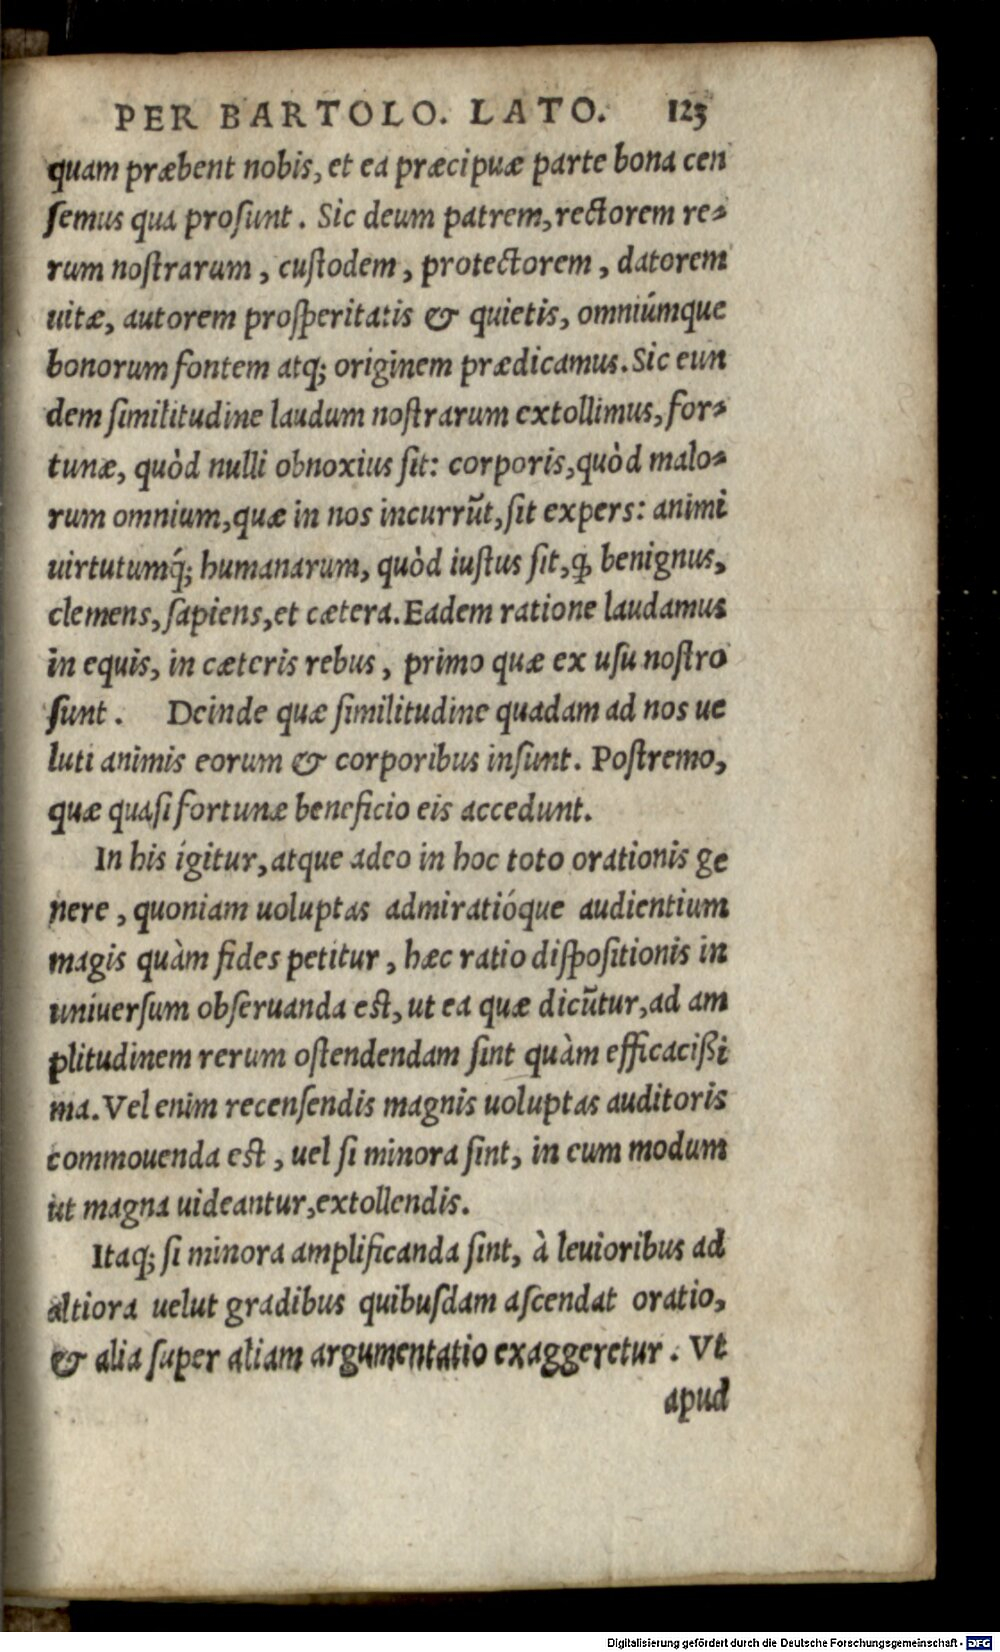 PER BARTOLO. LATO. 123
quam præbent nobis, et ea præcipuæ parte bona cen
ſemus qua proſunt. Sic deum patrem, rectorem re⸗
rum noſtrarum, cuſtodem, protectorem, datorem
uitæ, autorem proſperitatis & quietis, omniúmque
bonorum fontem atq; originem prædicamus. Sic eun
dem ſimilitudine laudum noſtrarum extollimus, for⸗
tunæ, quòd nulli obnoxius ſit: corporis, quòd malo⸗
rum omnium, quæ in nos incurrūt, ſit expers: animi
uirtutumq́; humanarum, quòd iuſtus ſit, ꝙ benignus,
clemens, ſapiens, et cætera. Eadem ratione laudamus
in equis, in cæteris rebus, primo quæ ex uſu noſtro
ſunt. Deinde quæ ſimilitudine quadam ad nos ue
luti animis eorum & corporibus inſunt. Poſtremo,
quæ quaſi fortunæ beneficio eis accedunt.
In his igitur, atque adeo in hoc toto orationis ge
nere, quoniam uoluptas admiratióque audientium
magis quàm fides petitur, hæc ratio diſpoſitionis in
uniuerſum obſeruanda eſt, ut ea quæ dicūtur, ad am
plitudinem rerum oſtendendam ſint quàm efficacißi
ma. Vel enim recenſendis magnis uoluptas auditoris
commouenda eſt, uel ſi minora ſint, in eum modum
ut magna uideantur, extollendis.
Itaq; ſi minora amplificanda ſint, à leuioribus ad
altiora uelut gradibus quibuſdam aſcendat oratio,
& alia ſuper aliam argumentatio exaggeretur. Vt
apud
Digitalisierung gefördert durch die Deutsche Forschungsgemeinschaft - DFG